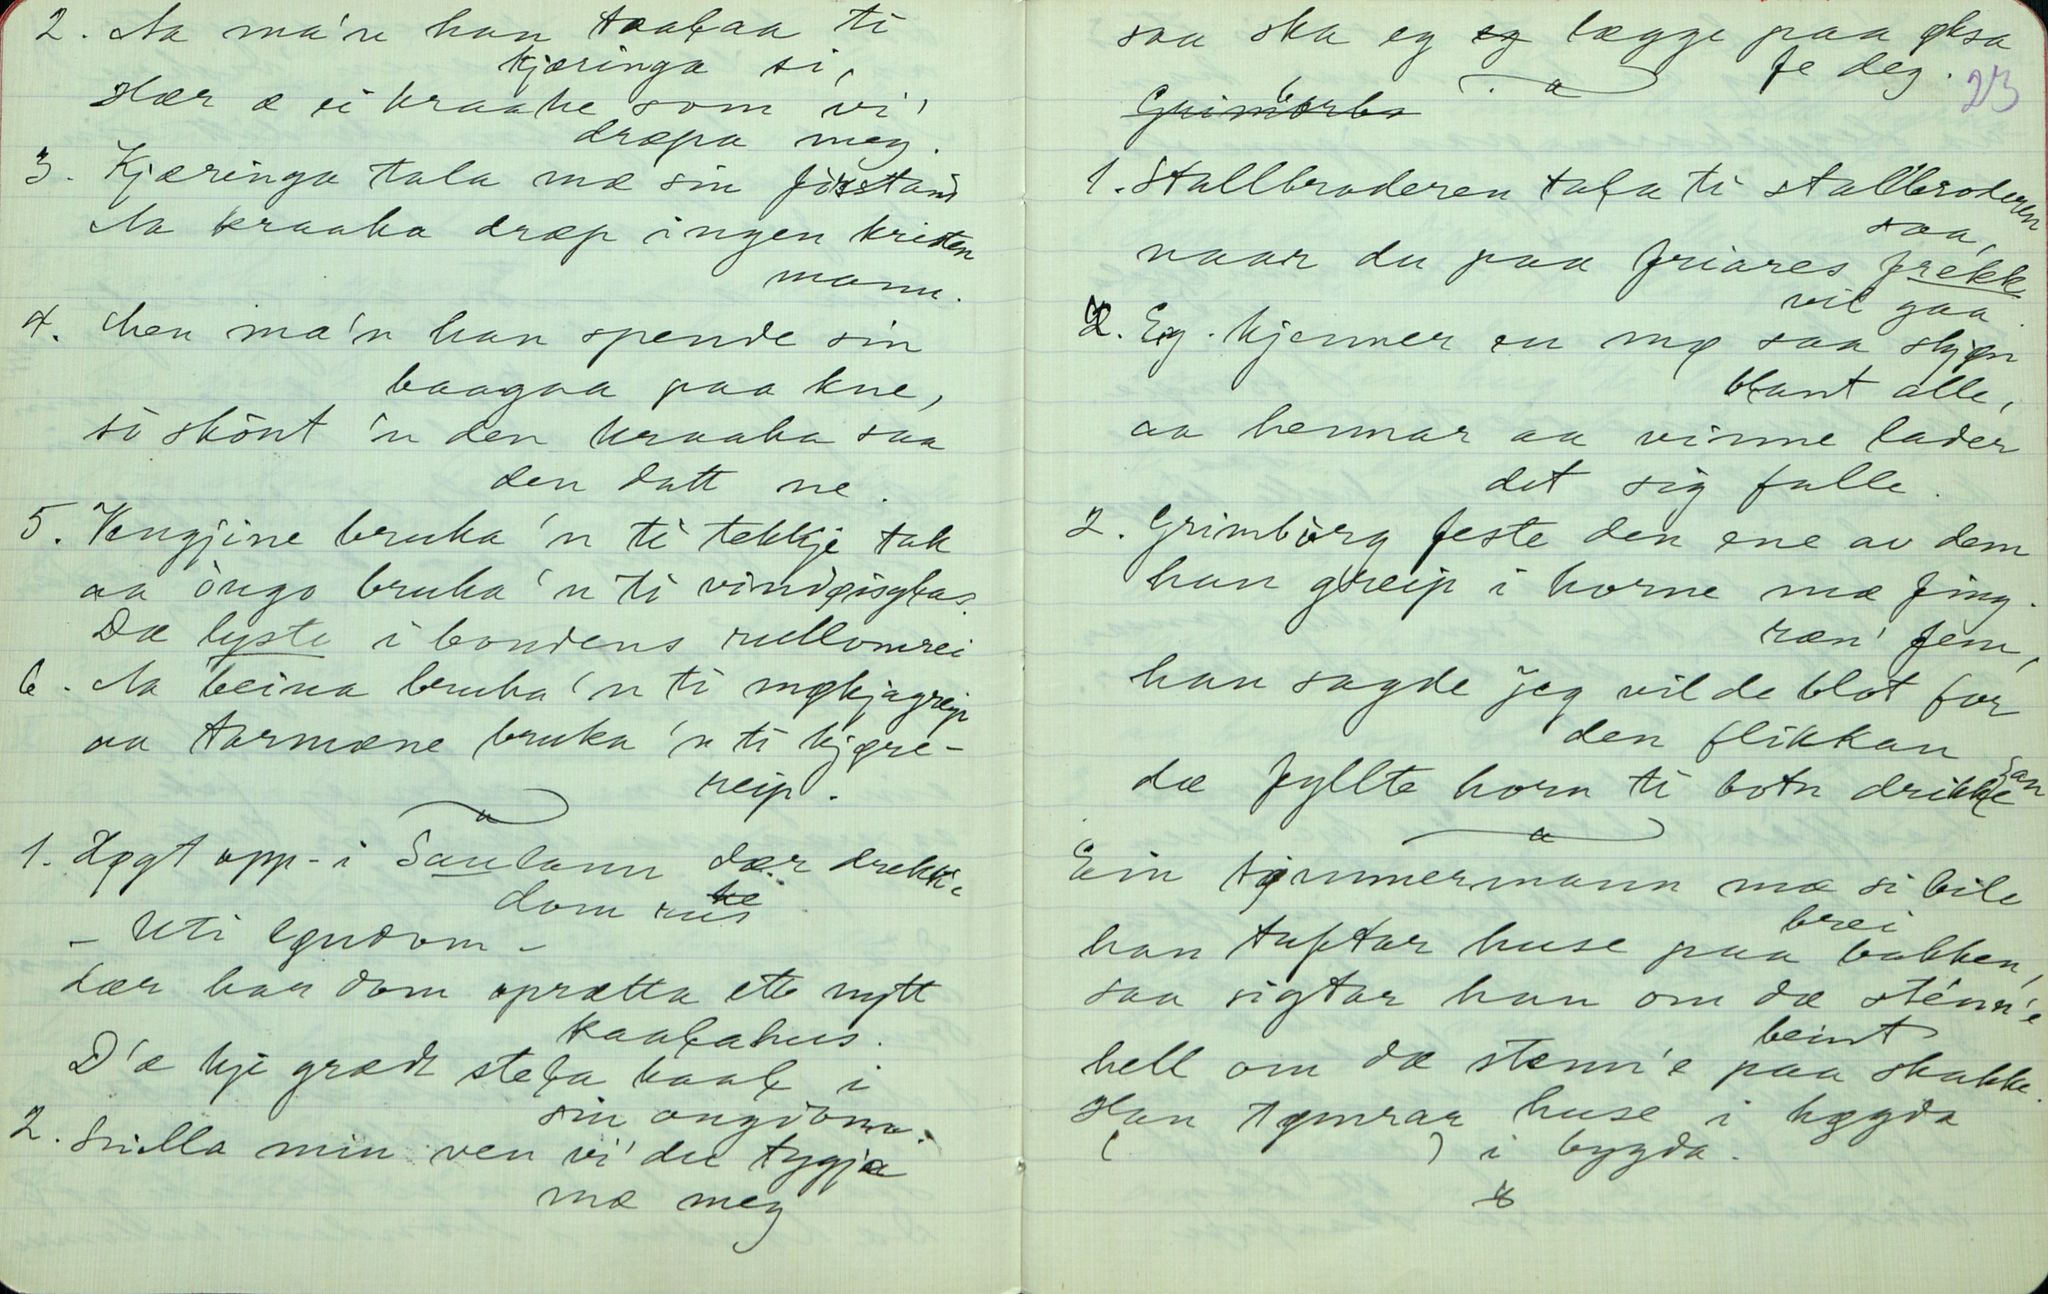 2. Aa ma'n han taałaa ti
kjæringa si,
Hær æ ei kraake som vi'
dræpa meg.
3. Kjæringa tala mæ sin förstand
Aa kraaka dræp ingen kristen
mann.
4. Men ma'n han spende sin
baagaa paa kne,
så skönt 'n den kraaka saa
den datt ne.
5. Vengjine bruka 'n ti tekkje tak
aa öngo bruka 'n ti
Dæ lyste i bondens
6. Aa beina bruka 'n ti møkjagreip
aa tarmæne bruka 'n ti kjøre-
reip.
1. Høgt opp i Saulann dær drekk
dom
- Uti løndom -
dær har dom oprætta ett nytt
kaałahus.
D'æ kje grædt steła kaał i
sin ongdom.
2. Snilla min ven vi' du tygja
mæ meg
saa ska eg eg lægge paa øksa
fe deg.
23
Grimborka
1. Stallbroderen tała ti stallbroderen
saa,
naar du paa friares frekk
vil gaa.
2. Eg kjenner en mø saa skjøn
blant alle,
aa hennar aa vinne lader
det sig falle.
2. Grimborg feste den ene av dem
han greip i horne mæ fing-
ræn' fem,
han sagde jeg vilde blot for
den flikkan
dæ fyllte horn ti botn drikke san
Ein tømmermann mæ si bile
brei
han tuftar huse paa bakken,
saa sigtar han om dæ sténn'e
beint
hell om dæ stænn'e paa skakke.
Han tømrar huse i høgda
( ) i bygda.